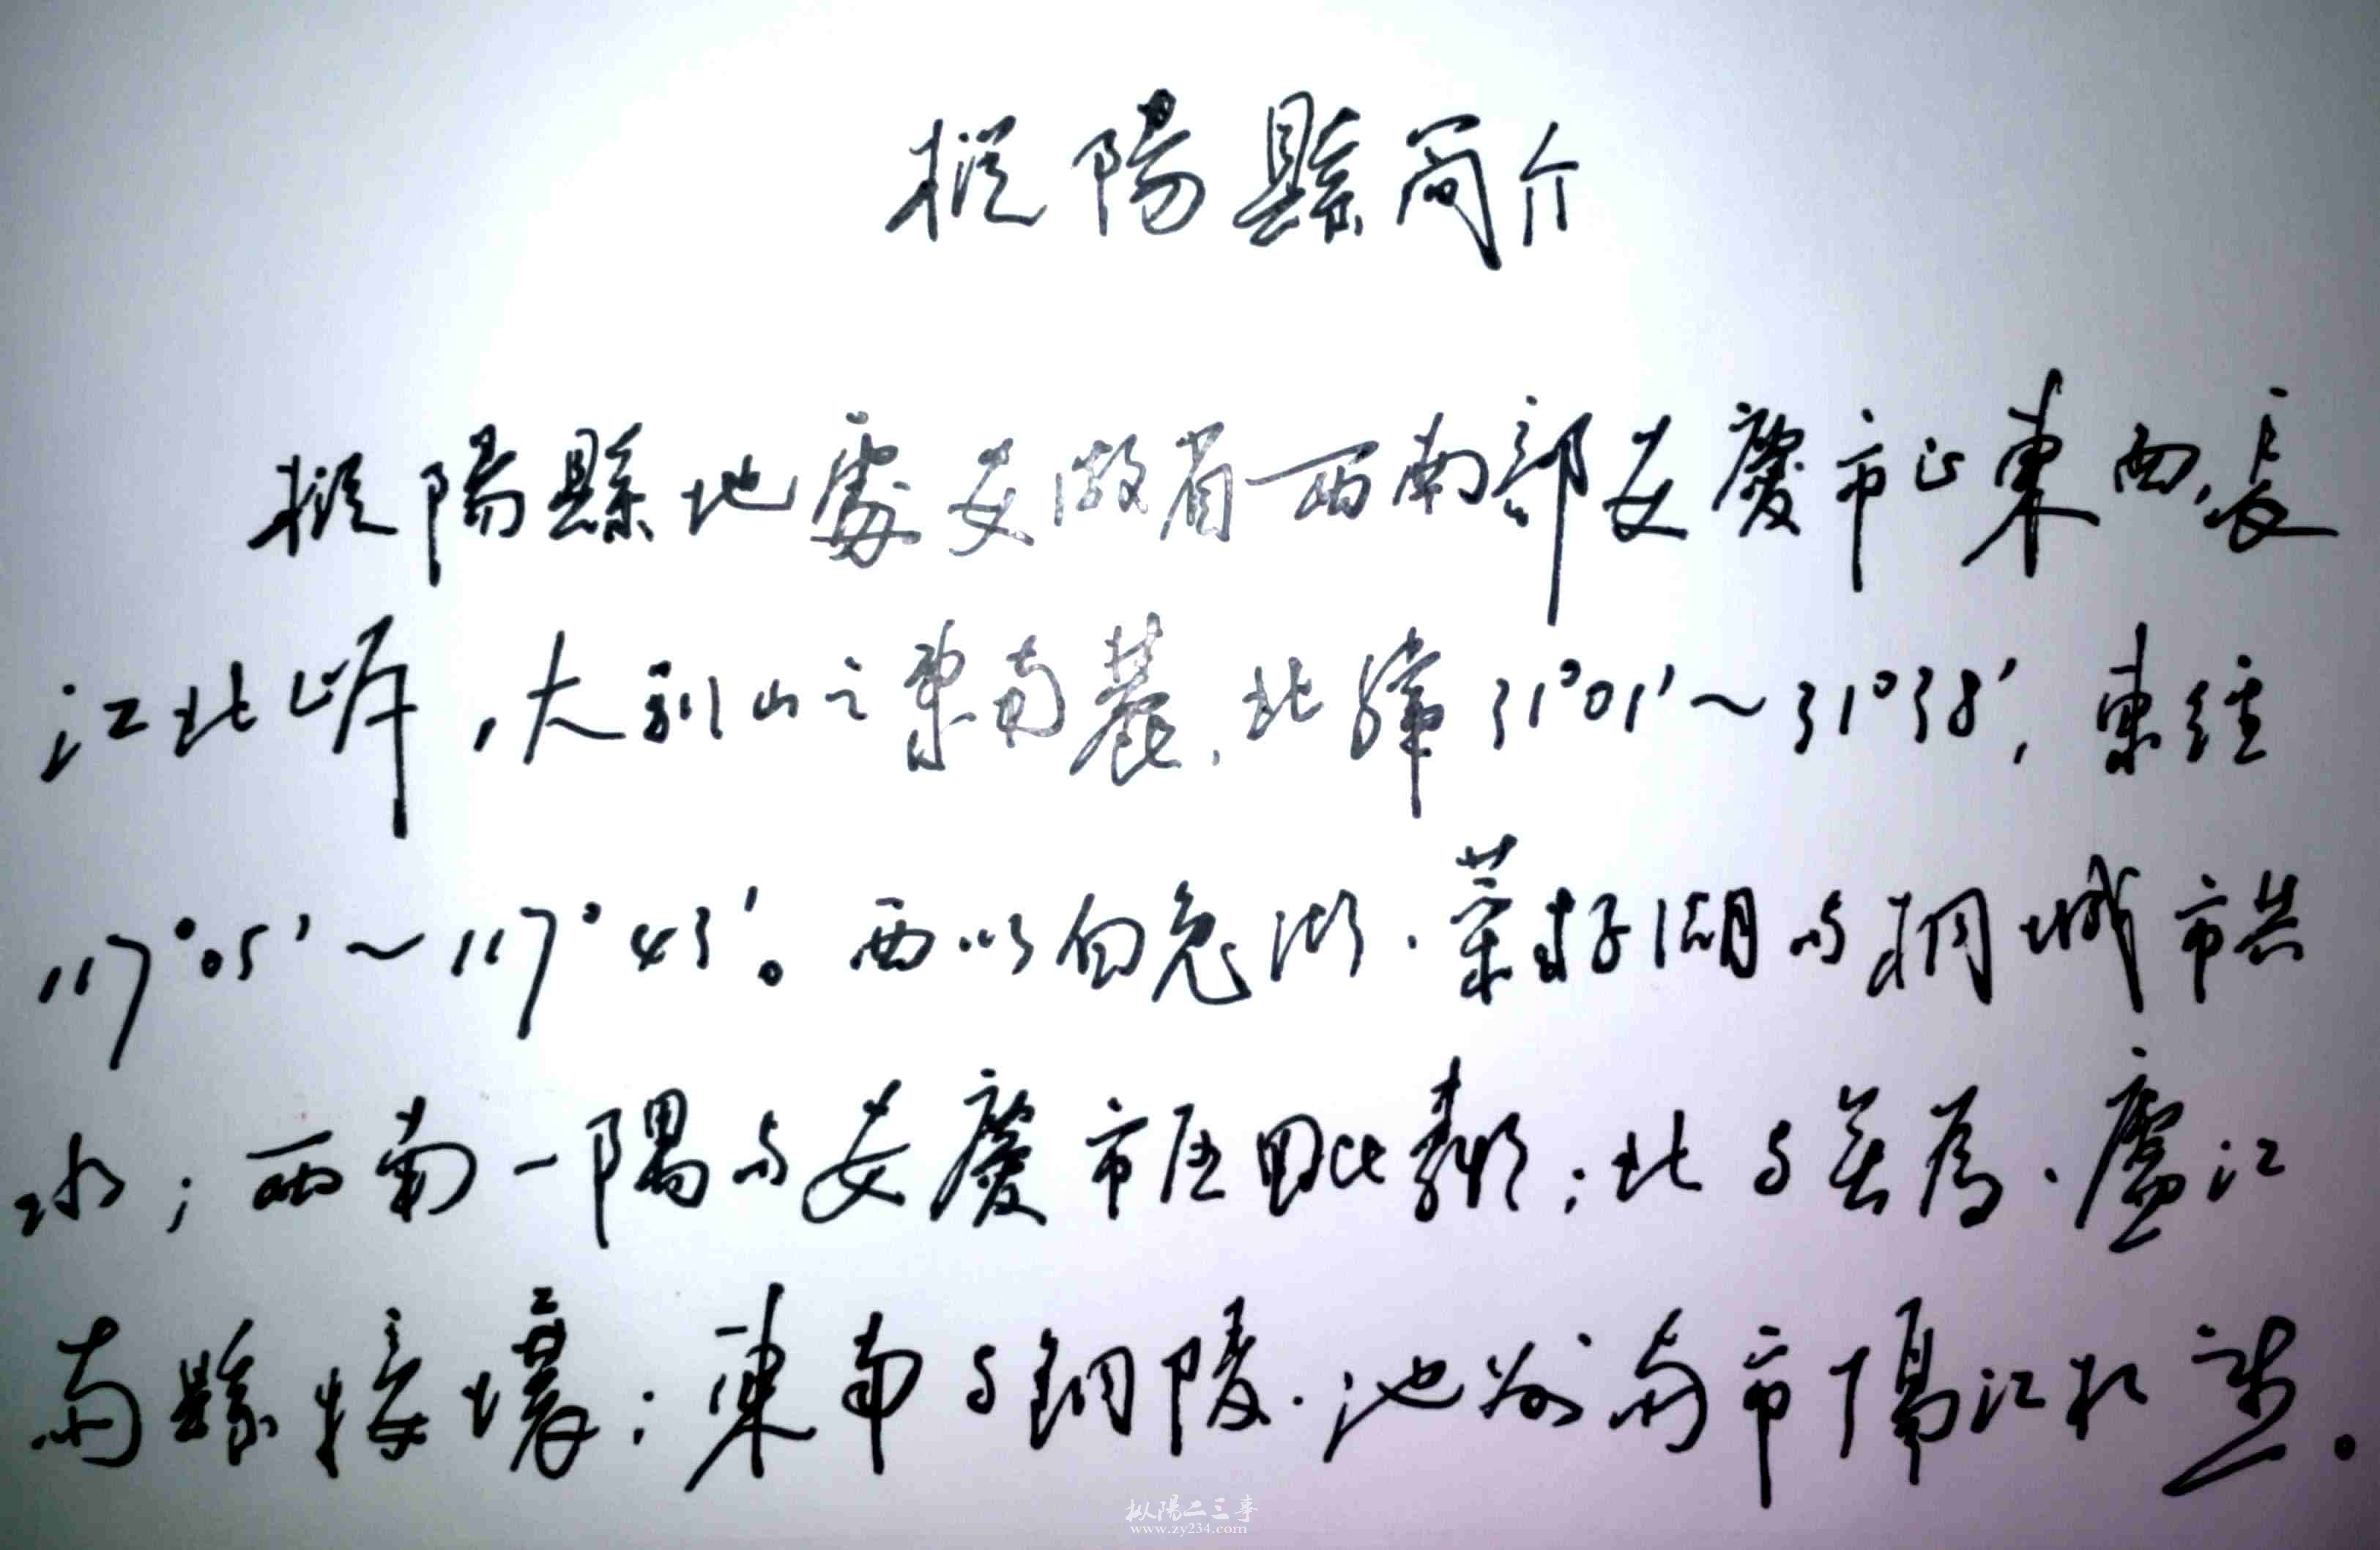 樅陽縣简介
樅陽縣地處安徽省西南部安慶市正東面,長
江北岸,大别山之東南麓,北緯31°01′~31°38′,東经
117°05′~117°43′。西以白兔湖·菜籽湖与桐城市共
水;西南一隅与安慶市区毗鄰;北与無為·廬江
两縣接壤;東南与銅陵·池州两市隔江相望。
枞陽二三事
www.zy234.com